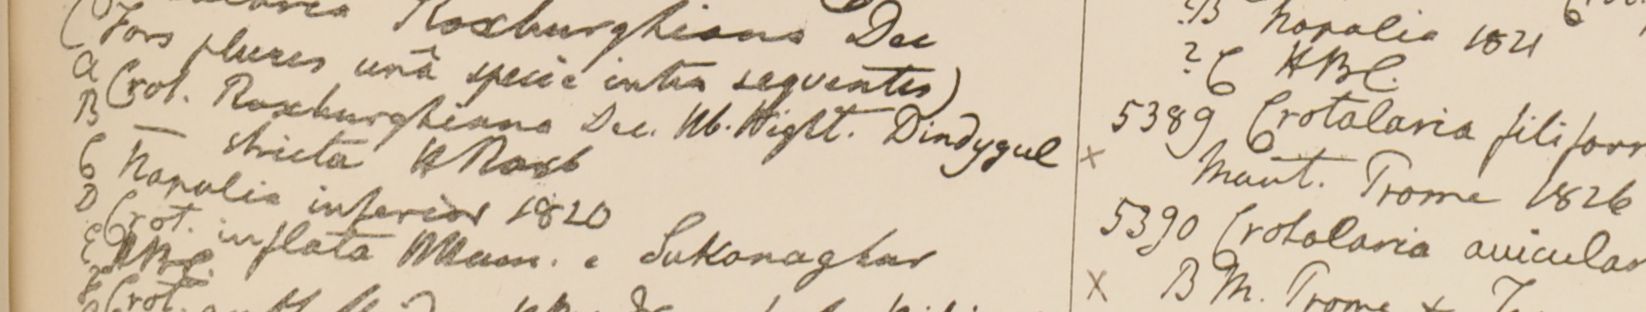 Roxburghiana Dec
(Fors plures unâ specie intra sequentes)
A Crot. Roxburghiana Dec. Hb. Wight. Dindygul
B — stricta H Roxb
C Napalia inferior 1820
D Crot. inflata HHam. e Sukanaghur
E HBC.
F Crot.
?B Napalia 1821
?C HBC.
5389 Crotalaria filiform
x Mont. Prome 1826
5390 Crotalaria avicular
x B M. Prome &